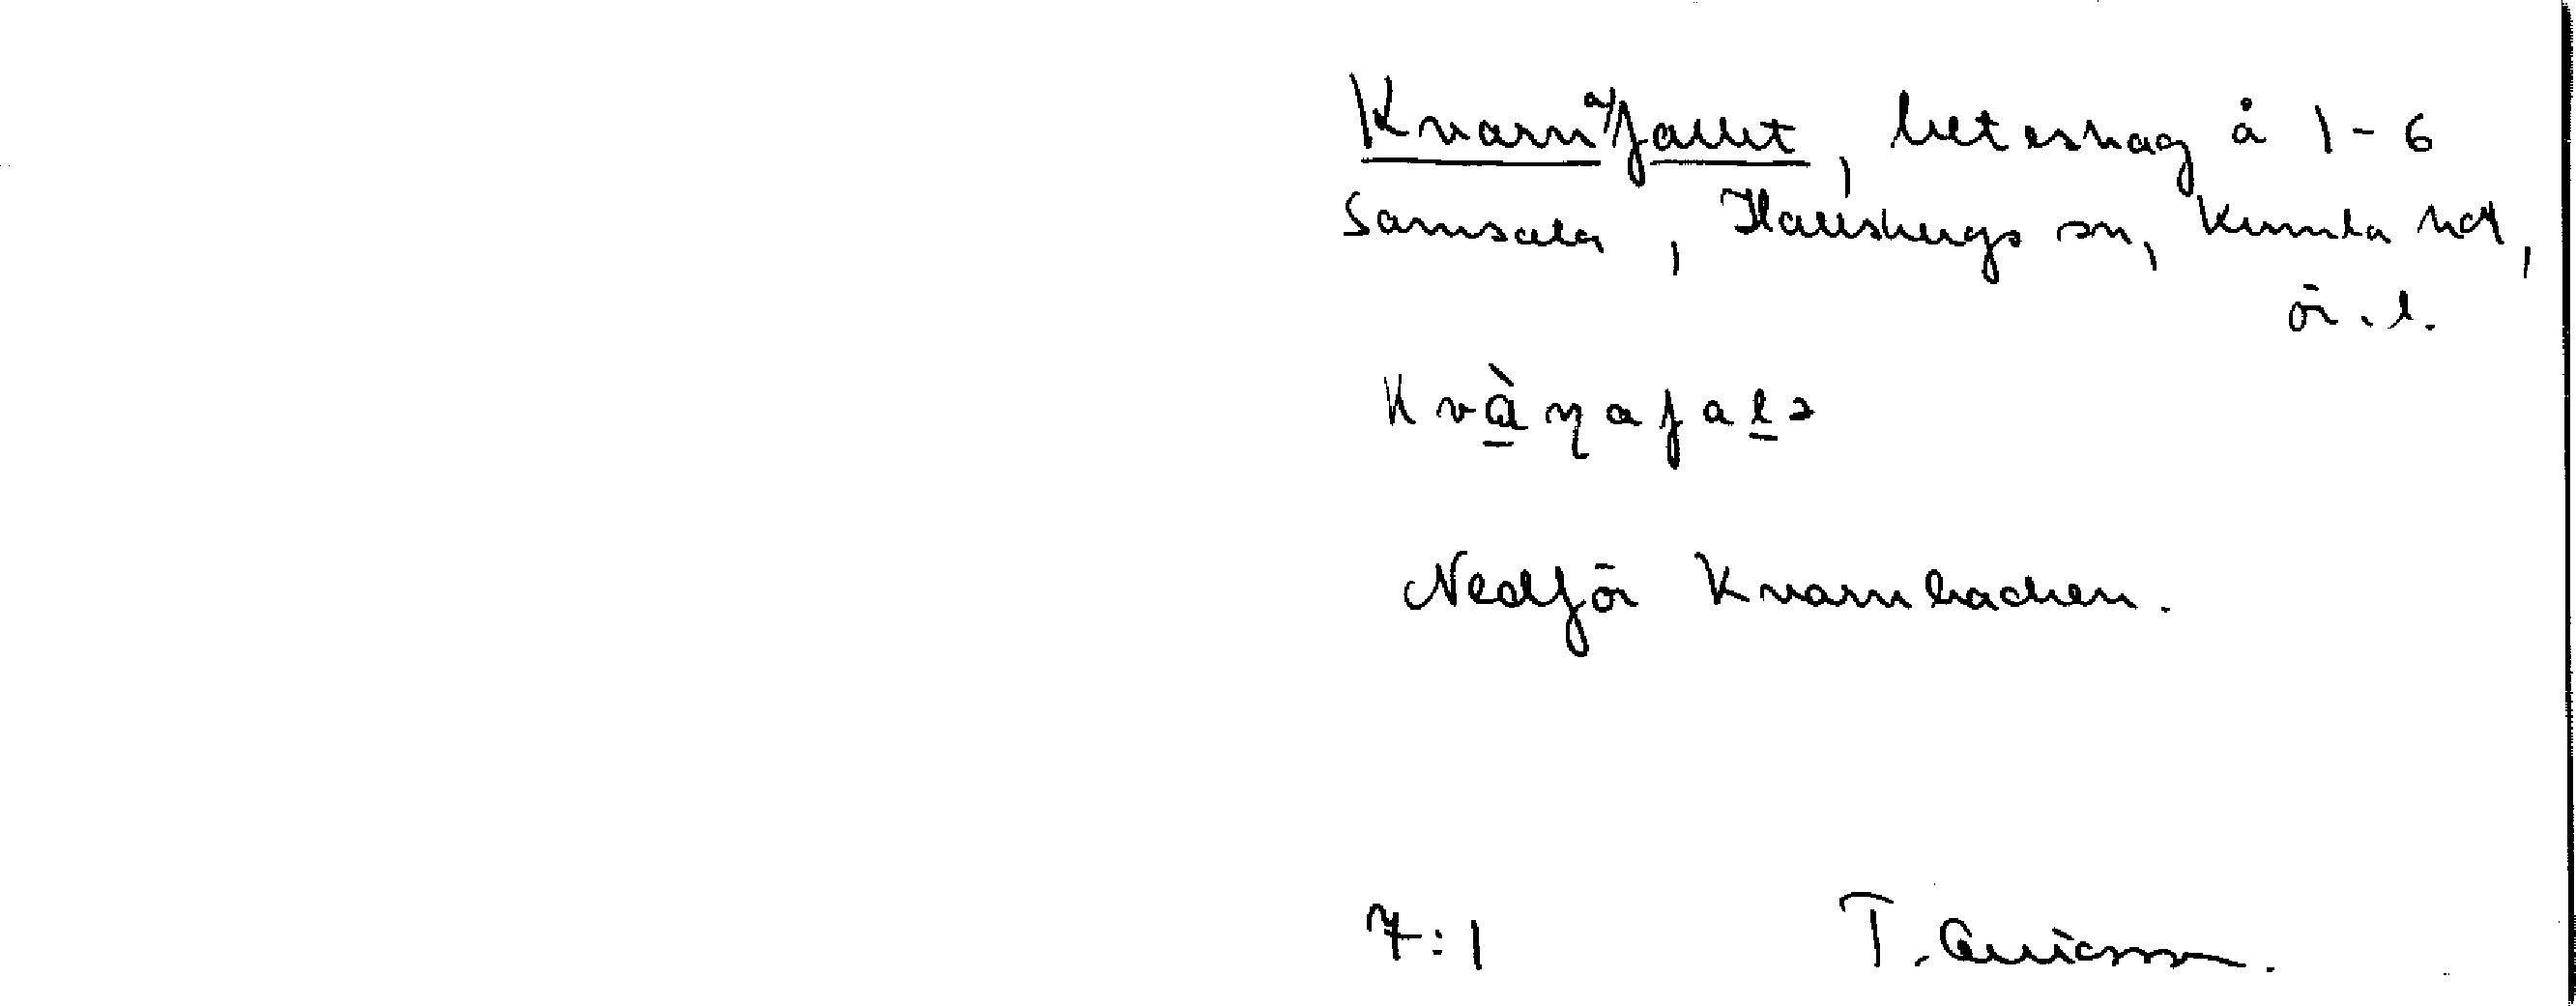 Kvarnafallet, beteshag å 1-6
Samsala, Hallsbergs sn, Kumla hd,
ör. l.
Kvàṇafalə
Nedför Kvarnbacken.
7:1 T. Ericsson.